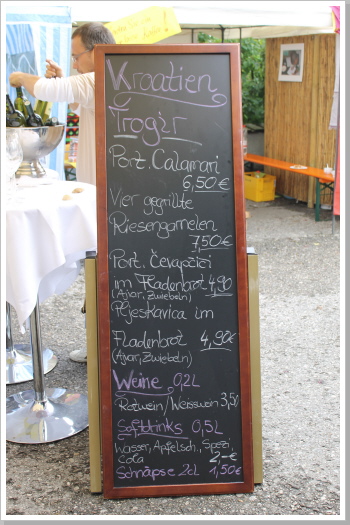 Kroatien
Trogir
Port. Calamari
6,50 €
Vier gegrillte
Riesengarnelen
7,50 €
Port. Čevapčići
im Fladenbrot 4,90
(Ajvar, Zwiebeln)
Pljeskavica im
Fladenbrot 4,90 €
(Ajvar, Zwiebeln)
Weine 0,2L
Rotwein/Weisswein 3,50
Softdrinks 0,5L
Wasser, Apfelsch., Spezi,
Cola 2,- €
Schnäpse 2cl 1,50€